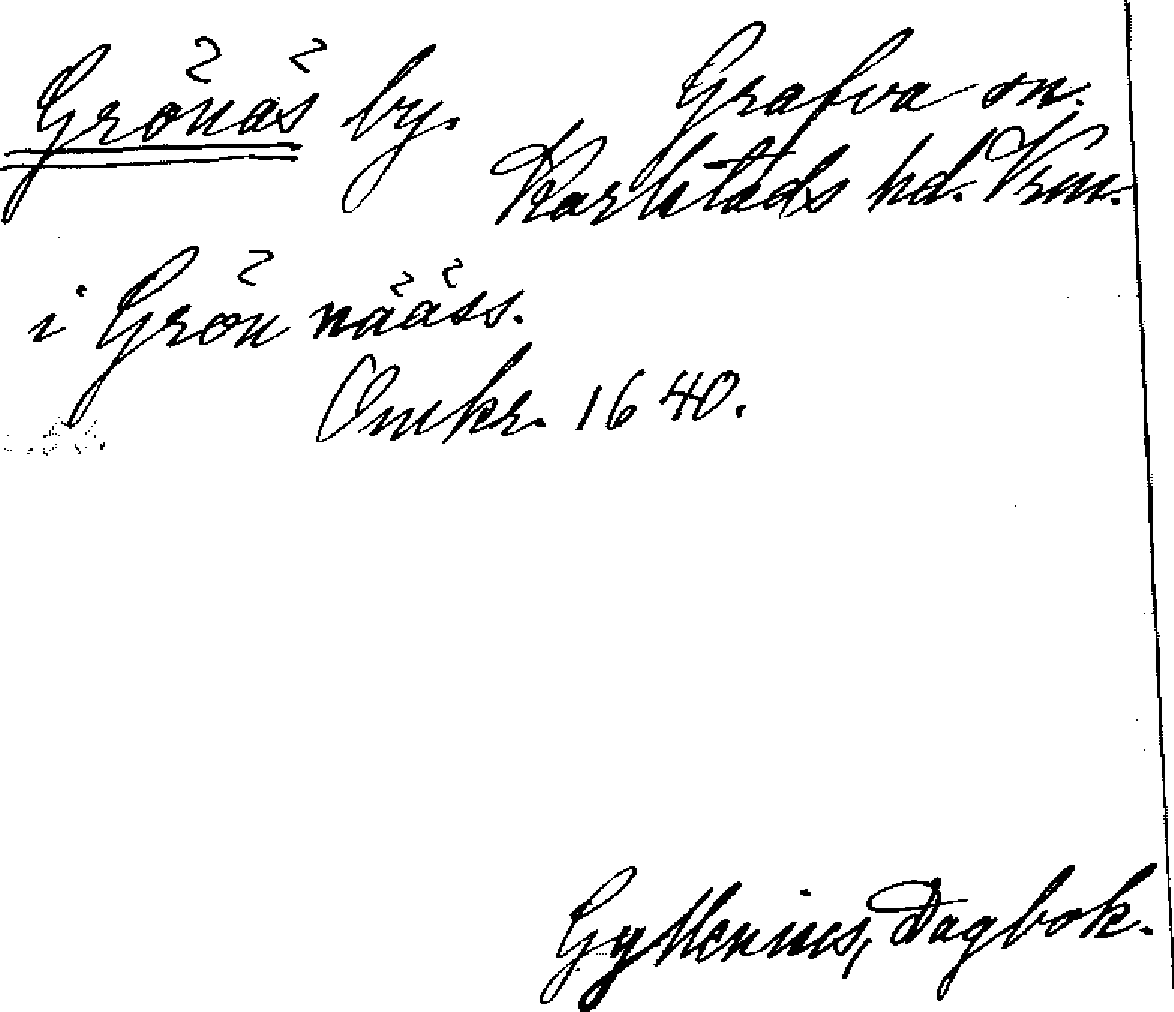 Grönäs by. Grafva sn.
Karlstads hd. Vrm.
i Grön nääss.
Omkr. 1640.
Gyllenius, Dagbok.